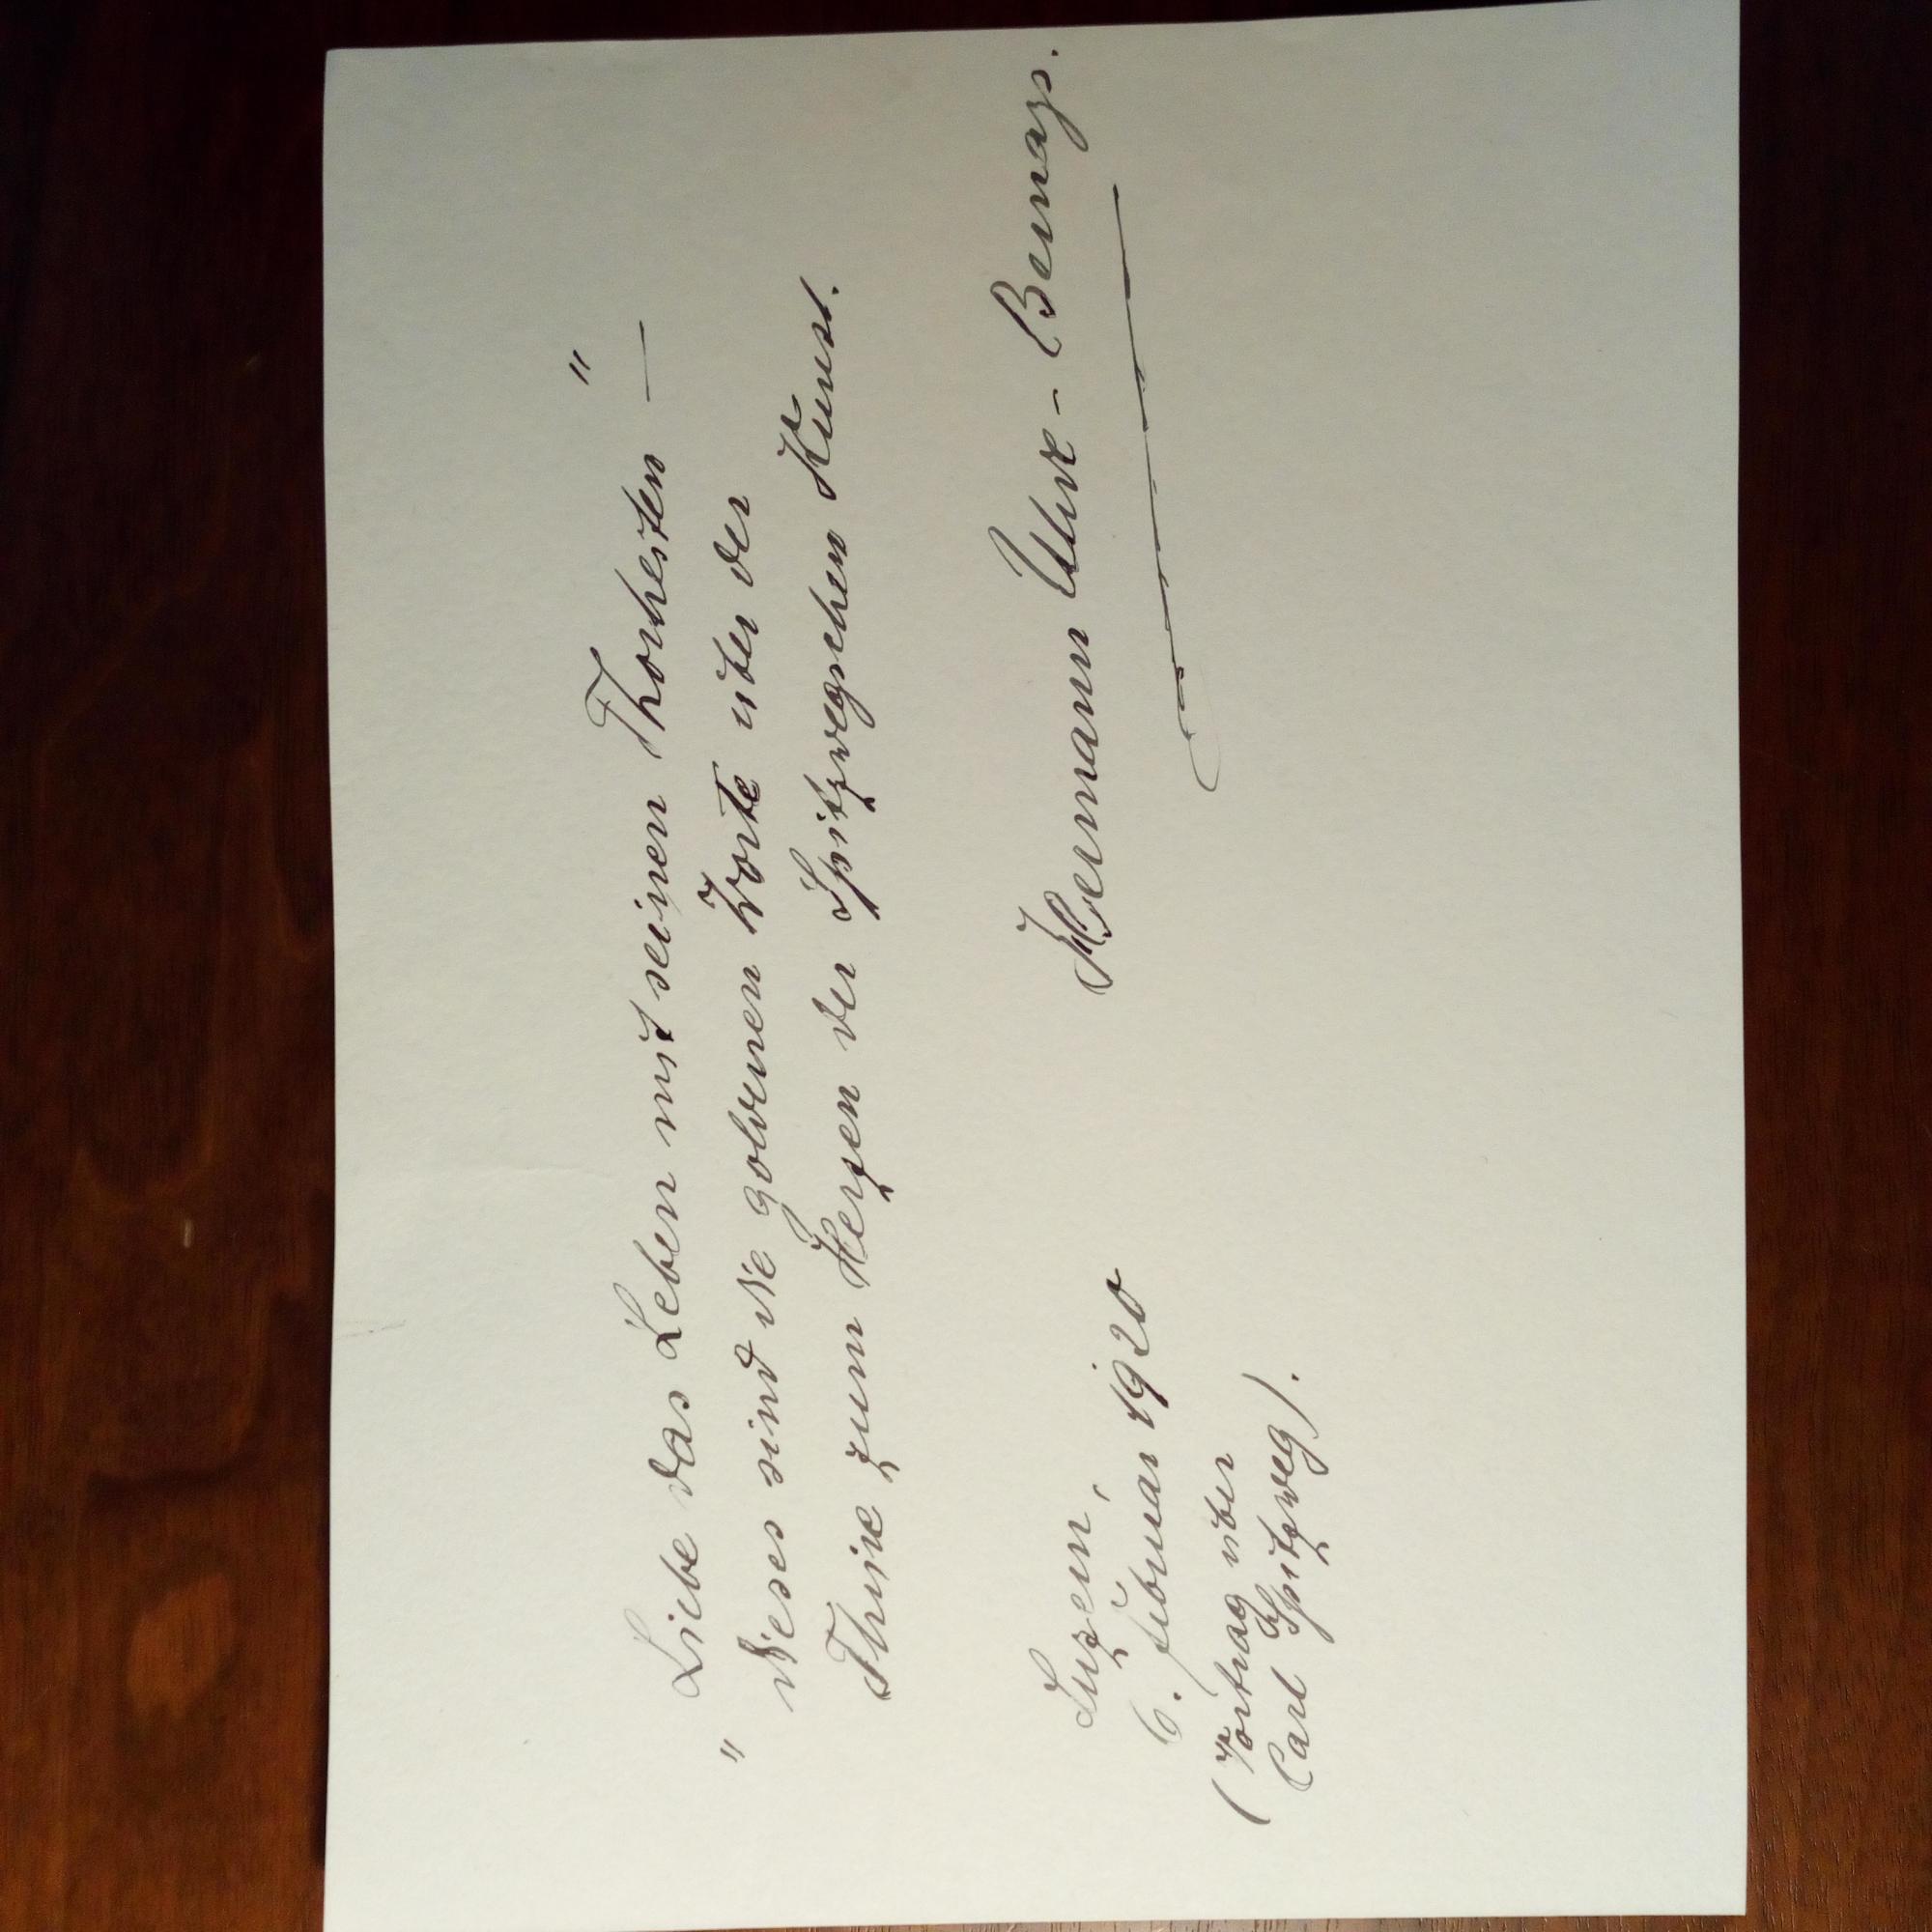 "Liebe das Leben mit seinen Thorheiten" —
dieses sind die goldenen Worte über der
Thüre zum Herzen der Spitzwegschen Kunst.
Hermann Uhde-Bernays.
Luzern,
6. Februar 1920
(Vortrag über
Carl Spitzweg).